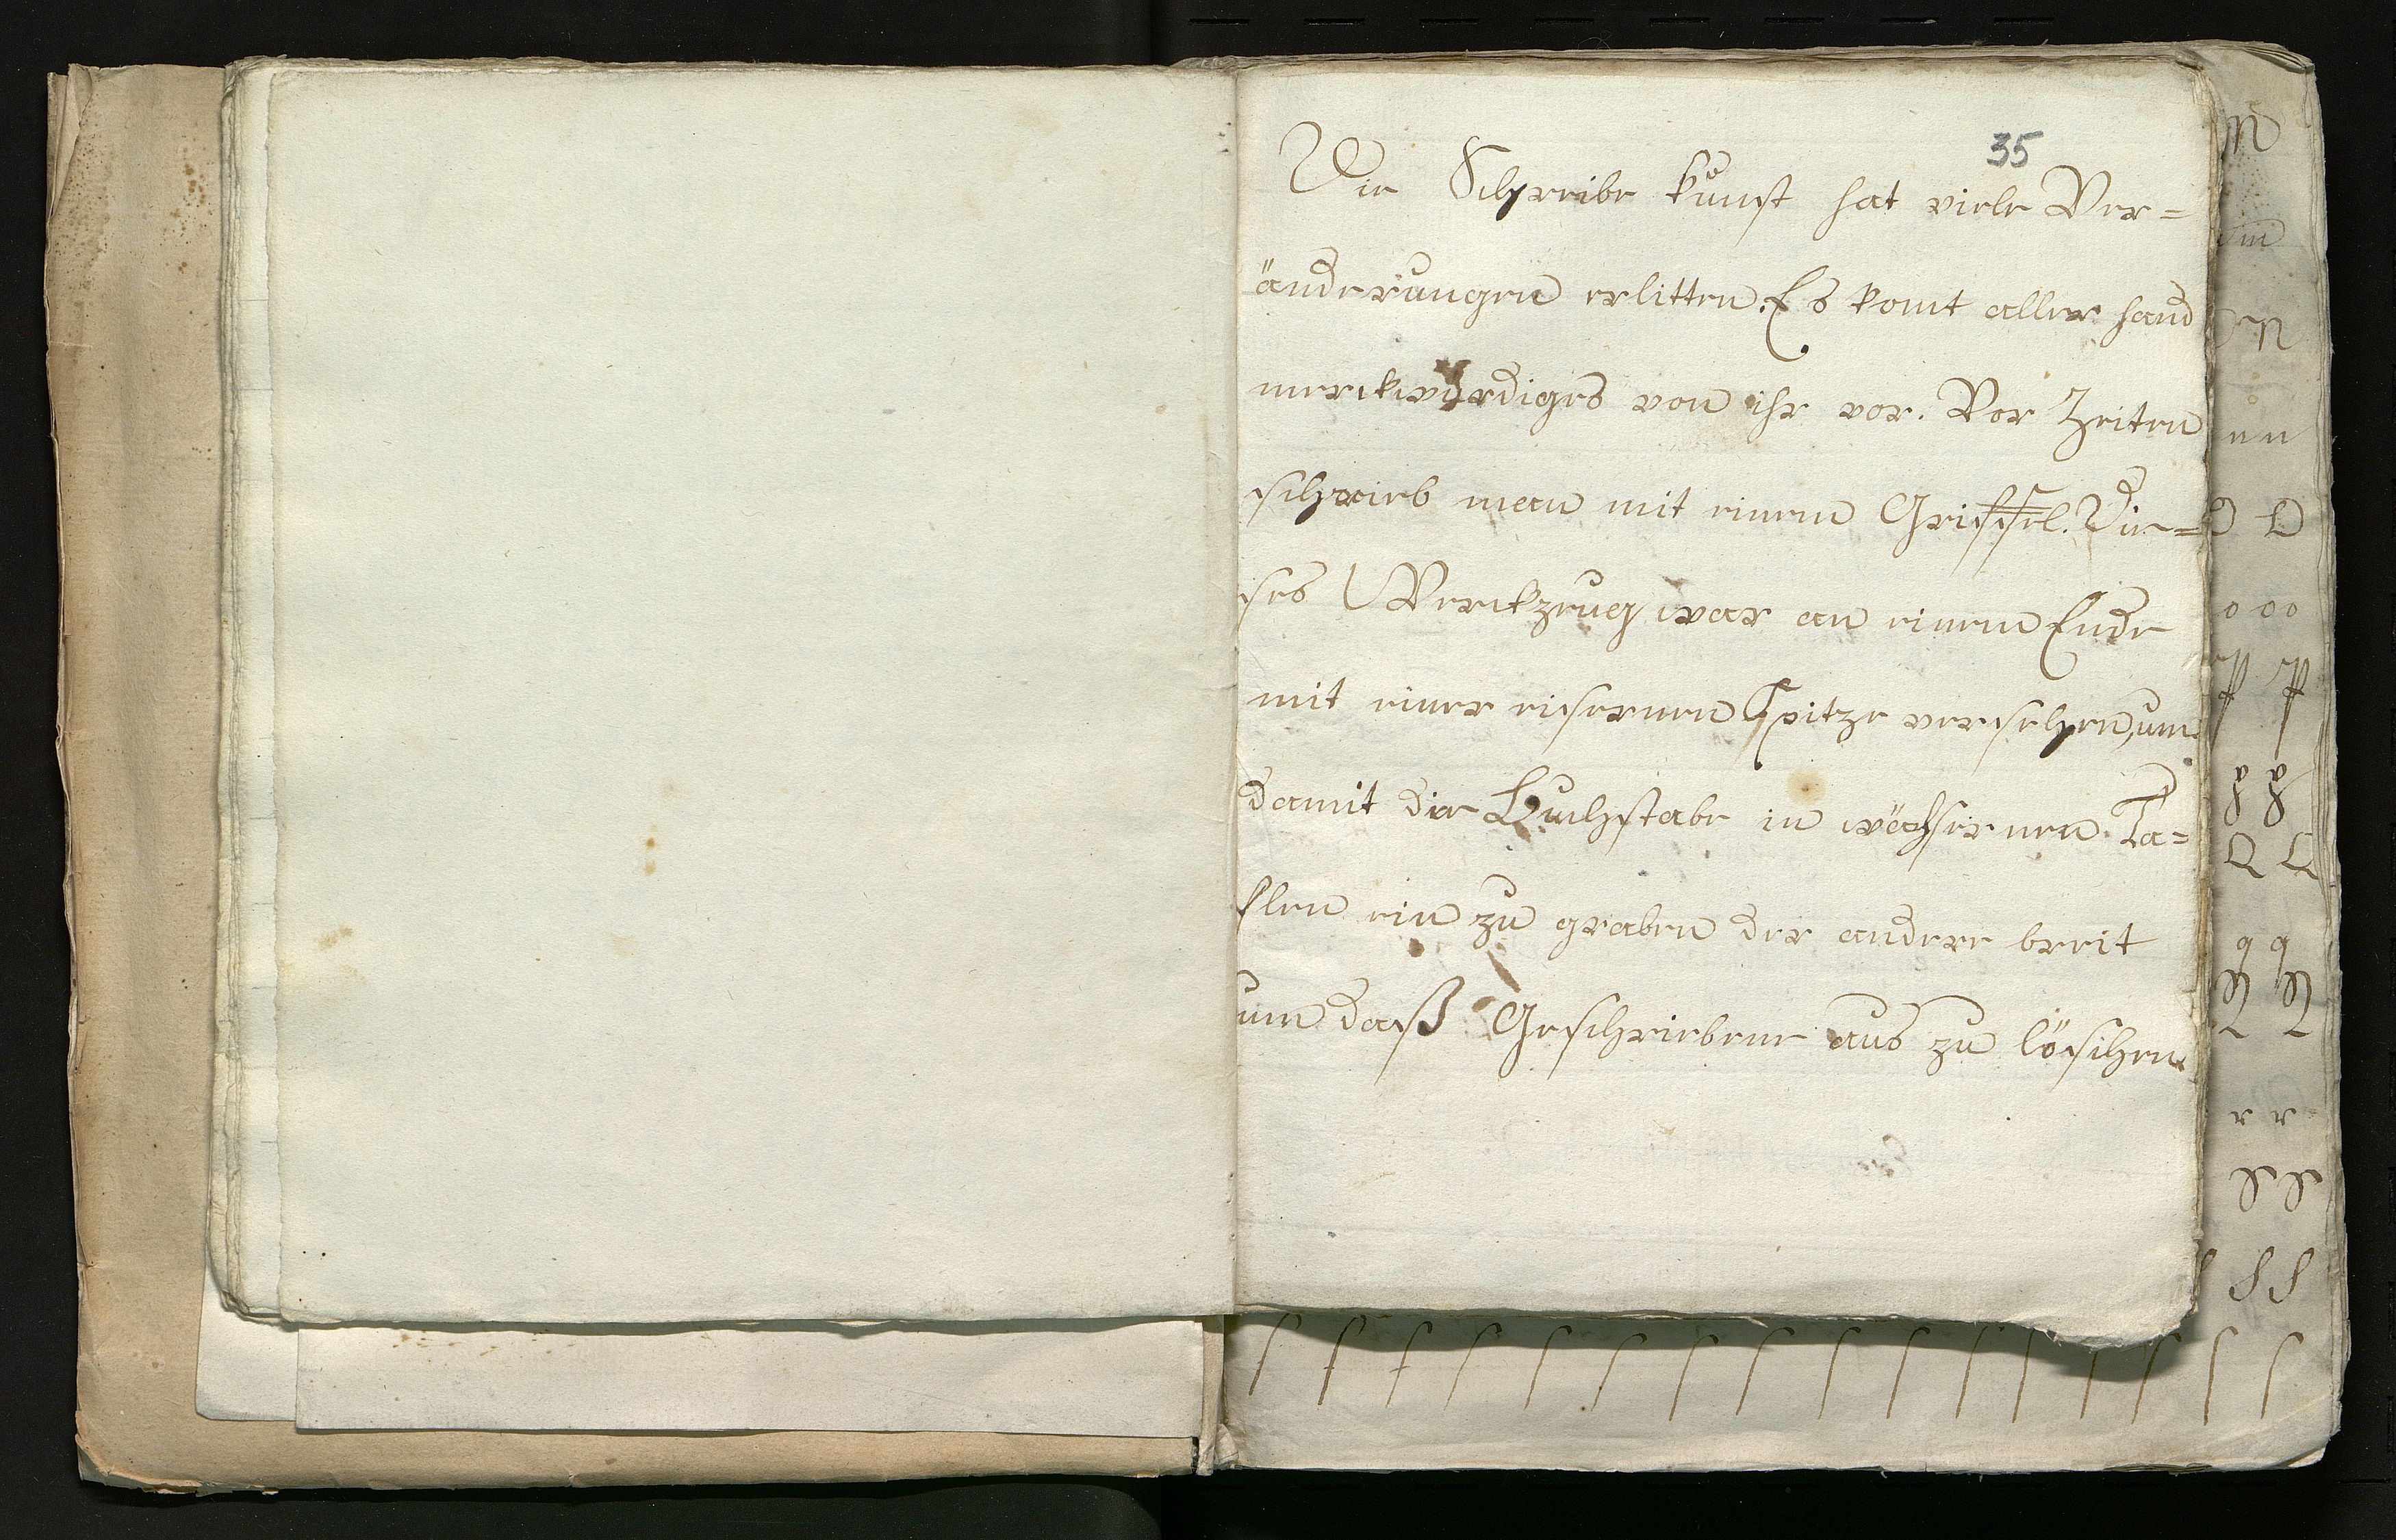 35
Die Schreibe kunst hat viele Ver=
änderungen erlitten. Es komt aller hand
merckwürdiges von ihr vor. Vor Zeiten
schrieb man mit einem Griffel. Die=
ses Werckzeug war an einem Ende
mit einer eisernen Spitze versehen, um
damit die Buchstabe in wächsernen Ta=
flen ein zu graben der andere breit
um daß Geschriebene aus zu löschen